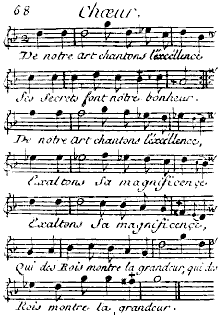 68 Chœur.
De notre art chantons l'éxcéllence
Ses Secrets font nôtre bonheur.
De notre art chantons l'éxcéllence,
Exaltons Sa magnificençe
Exaltons Sa magnificençe,
Qui des Rois montre la grandeur, qui des
Rois montre la grandeur.